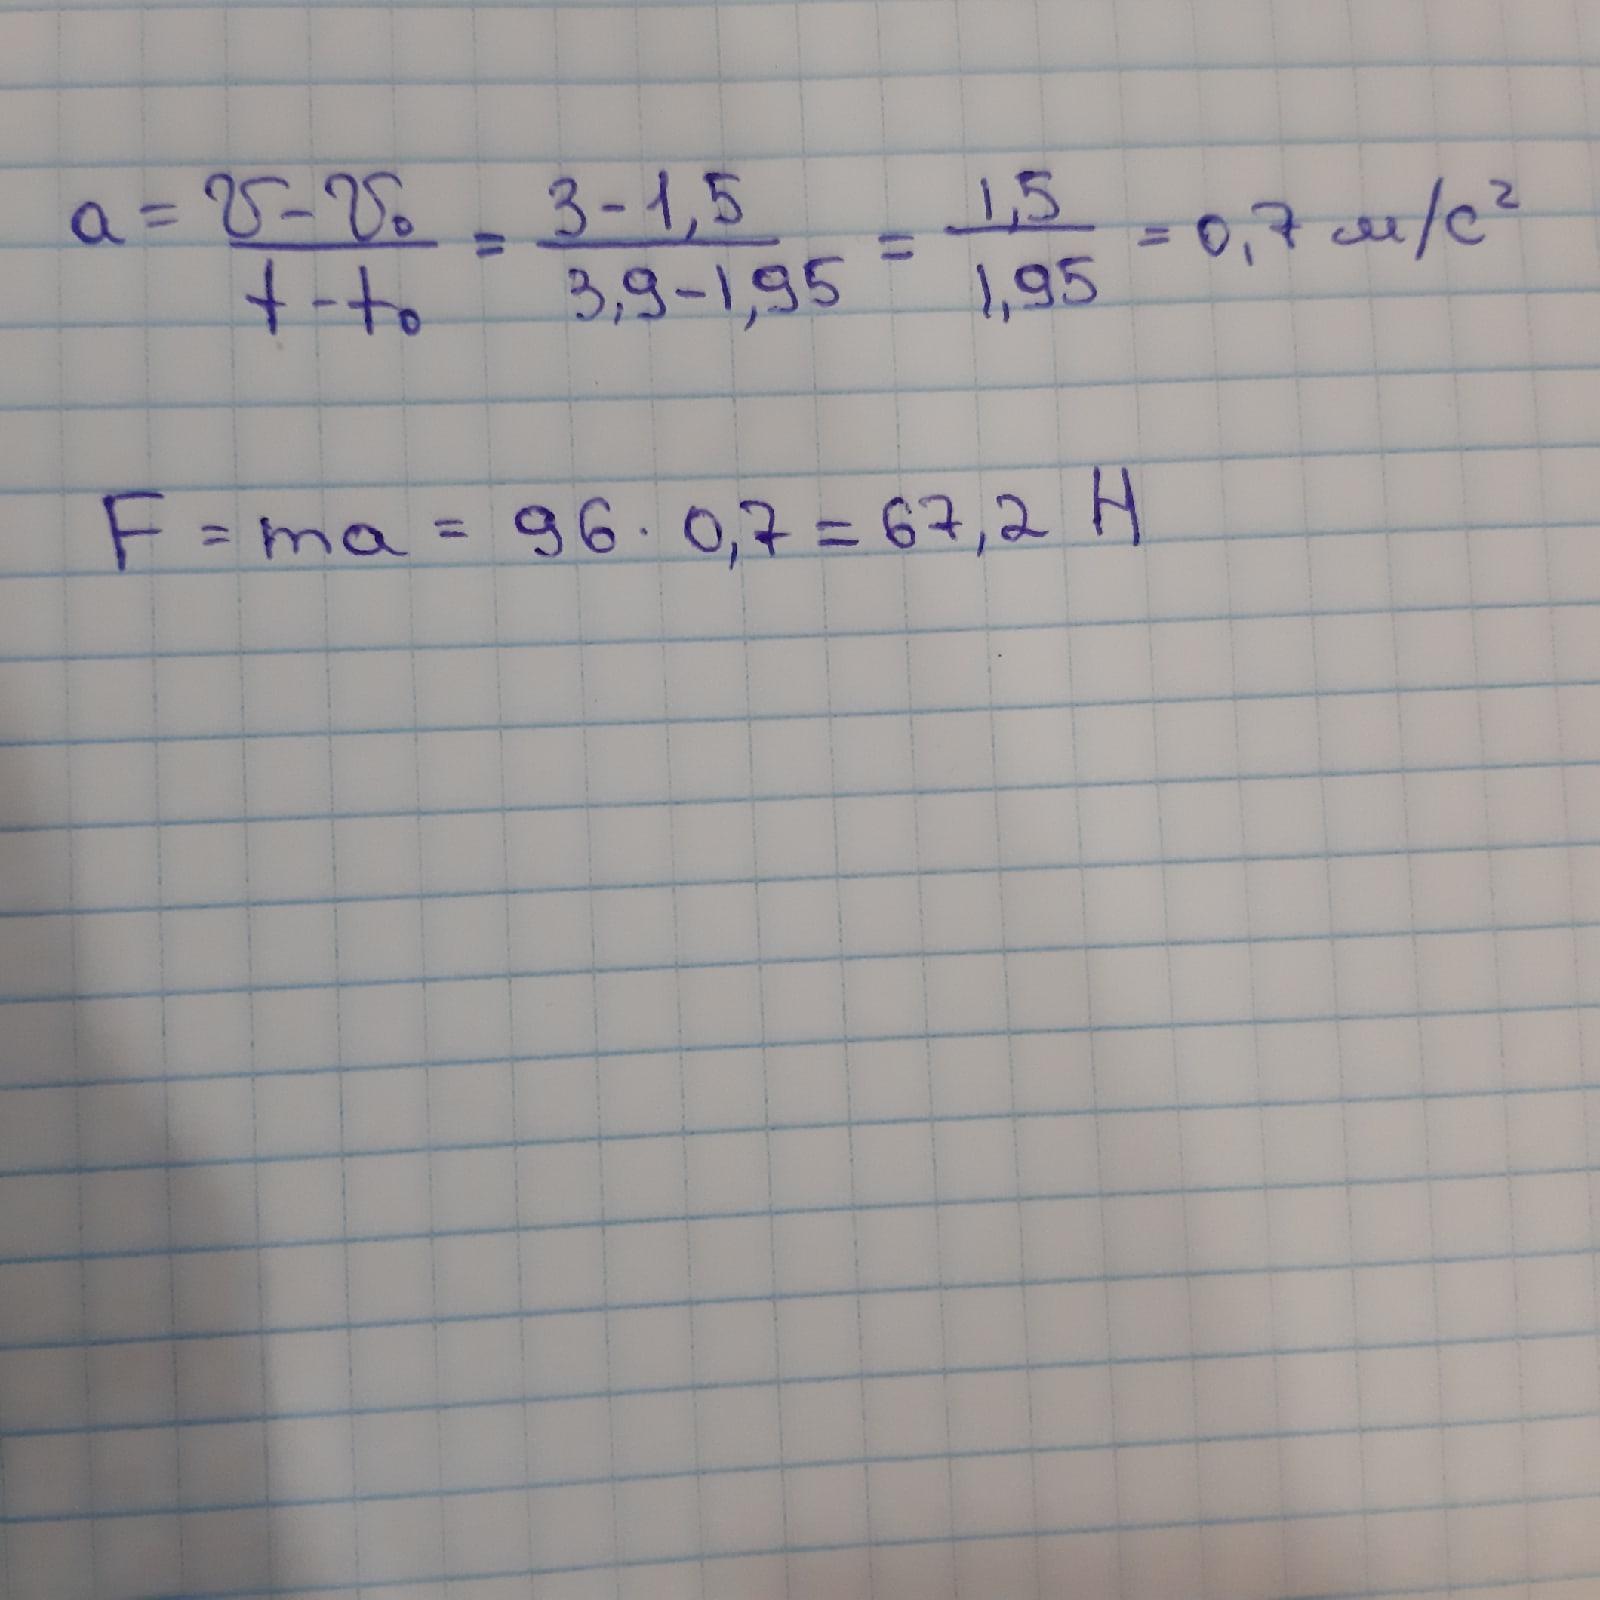 a = (v - v₀)/(t - t₀) = (3 - 1,5)/(3,9 - 1,95) = 1,5/1,95 = 0,7 м/с²
F = ma = 96 · 0,7 = 67,2 Н